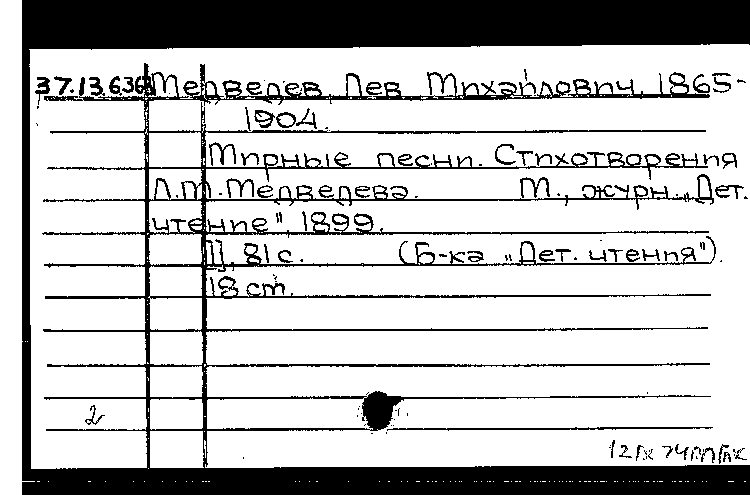 37.13.636 Медведев, Лев Михайлович, 1865-
1904.
Мирные песни. Стихотворения
Л.М. Медведева. М., журн. „Дет.
чтение", 1899.
II, 81 с. (Б-ка „Дет. чтения").
18 cm.
2